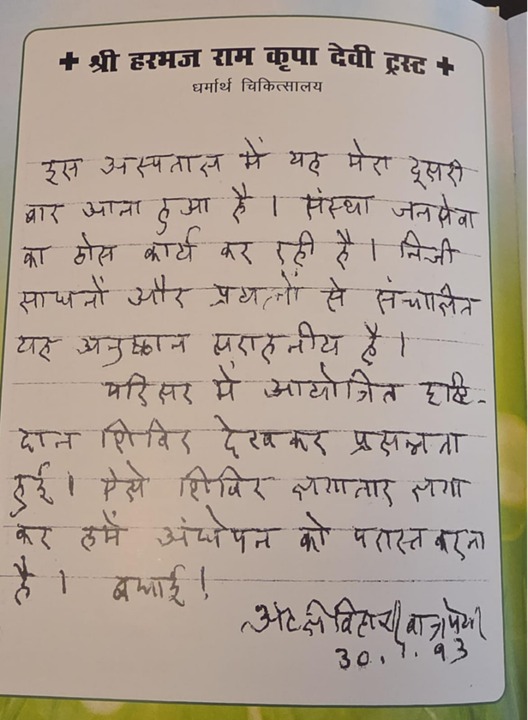 + श्री हरभज राम कृपा देवी ट्रस्ट +
धर्मार्थ चिकित्सालय
इस अस्पताल में यह मेरा दूसरी
बार आना हुआ है । संस्था जनसेवा
का ठोस कार्य कर रही है । निजी
साधनों और प्रयत्नों से संचालित
यह अनुष्ठान सराहनीय है ।
परिसर में आयोजित दृष्टि-
दान शिविर देखकर प्रसन्नता
हुई । ऐसे शिविर लगातार लगा
कर हमें अंधेपन को परास्त करना
है । बधाई !
अटल बिहारी वाजपेयी
30.1.93